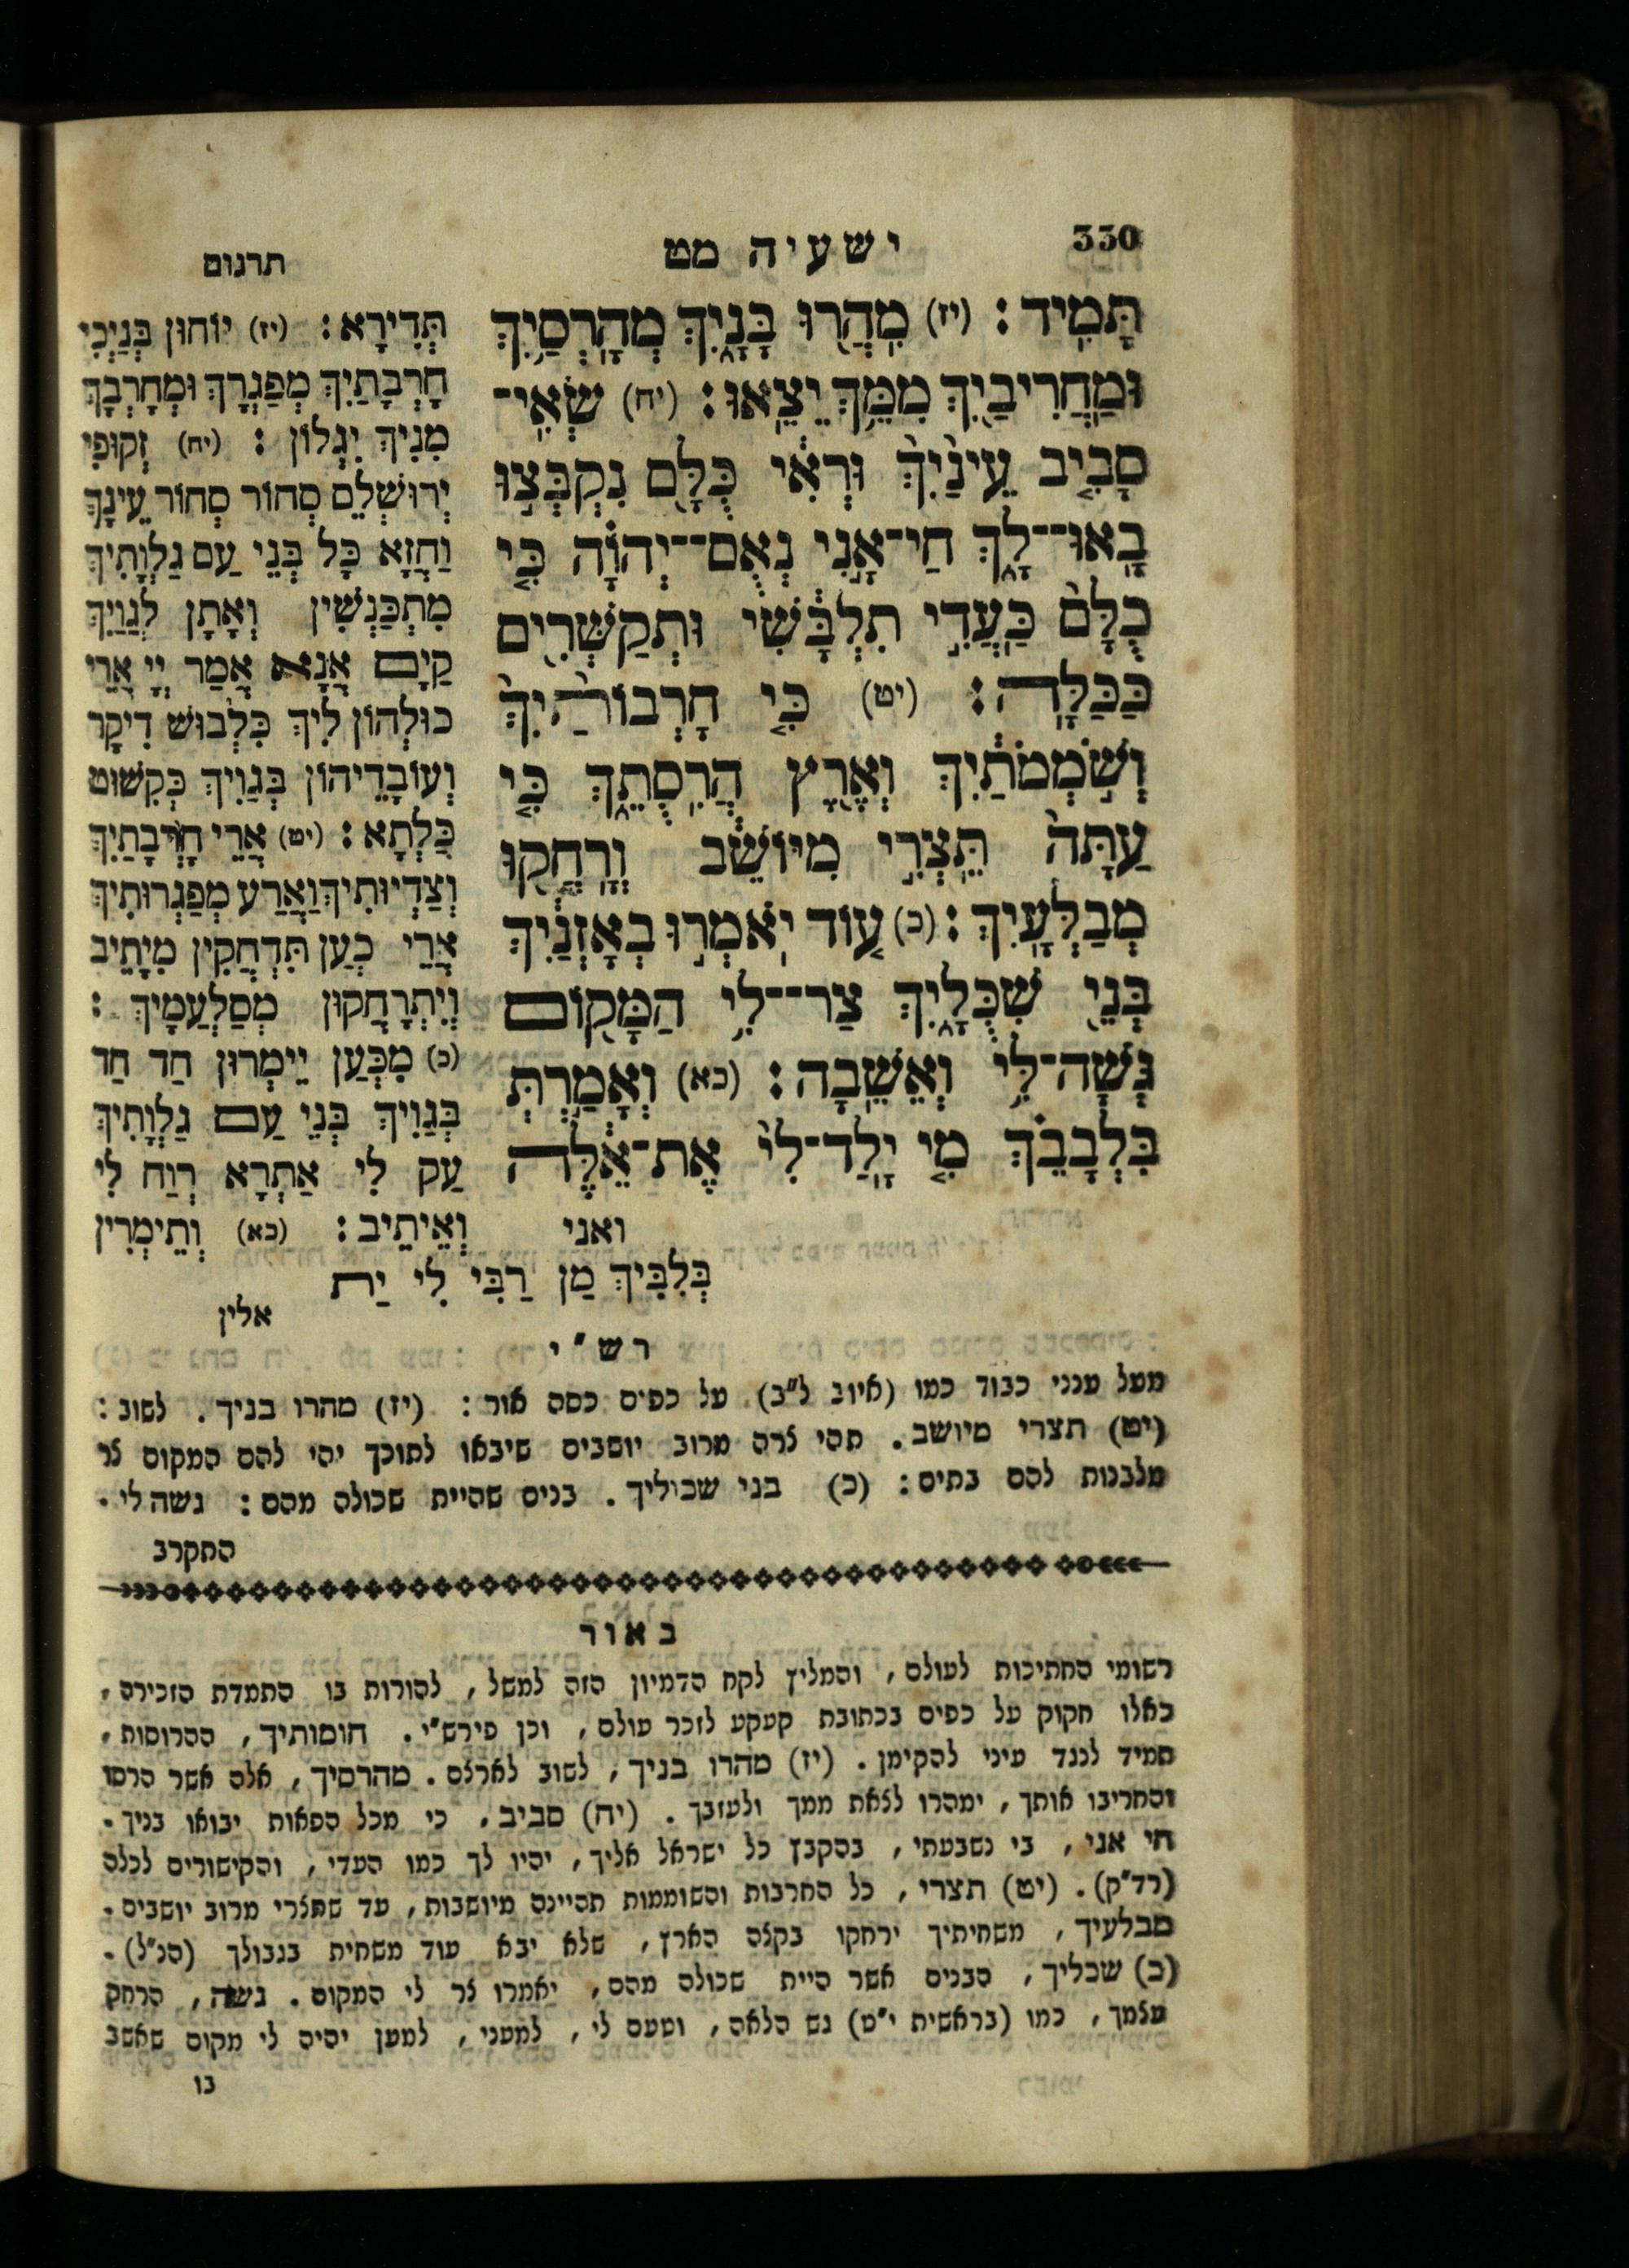 330
ישעיה מט
תָּמִֽיד׃ (יז) מִֽהֲר֖וּ בָּנָ֑יִךְ מְהָֽרְסַ֥יִךְ
וּמַֽחֲרִיבַ֖יִךְ מִמֵּ֥ךְ יֵצֵֽאוּ׃ (יח) שְׂאִֽי־
סָבִ֤יב עֵינַ֙יִךְ֙ וּרְאִ֔י כֻּלָּ֖ם נִקְבְּצ֣וּ
בָֽאוּ־לָ֑ךְ חַי־אָ֣נִי נְאֻם־יְהֹוָ֗ה כִּ֤י
כֻלָּם֙ כַּֽעֲדִ֣י תִלְבָּ֔שִׁי וּֽתְקַשְּׁרִ֖ים
כַּכַּלָּֽה׃ (יט) כִּ֤י חָרְבוֹתַ֙יִךְ֙
וְשֹׁ֣מְמֹתַ֔יִךְ וְאֶ֖רֶץ הֲרִֽסֻתֵ֑ךְ כִּ֤י
עַתָּה֙ תֵּֽצְרִ֣י מִיּוֹשֵׁ֔ב וְרָֽחֲק֖וּ
מְבַלְּעָֽיִךְ׃ (כ) ע֚וֹד יֹֽאמְר֣וּ בְאָזְנַ֔יִךְ
בְּנֵ֖י שִׁכֻּלָ֑יִךְ צַר־לִ֥י הַמָּק֖וֹם
גְּשָׁה־לִּ֥י וְאֵשֵֽׁבָה׃ (כא) וְאָמַ֣רְתְּ
בִּלְבָבֵ֗ךְ מִ֤י יָֽלַד־לִי֙ אֶת־אֵ֔לֶּה
ואני
תרגום
תְּדִירָא׃ (יז) יוֹחוּן בְּנַיְכִי
חָרְבָתַיִךְ מְפַגְּרָךְ וּמְחָרְבָךְ
מִנִיךְ יִגְלוֹן׃ (יח) זְקוּפִי
יְרוּשְׁלֵם סְחוֹר סְחוֹר עֵינָךְ
וַחֲזָא כָּל בְּנֵי עַם גַלְוָתִיךְ
מִתְכַּנְשִׁין וְאָתָן לְגַוֵיךְ
קַיָם אֲנָא אֲמַר יְיָ אֲרֵי
כוּלְהוֹן לִיךְ כִּלְבוּשׁ דִיקָר
וְעוֹבָדֵיהוֹן בְּגַוִיךְ כְּקִשׁוּט
כַּלְתָא׃ (יט) אֲרֵי חָרְבָתַיִךְ
וְצַדְיוּתִיךְ וַאֲרַע מְפַגְרוּתִיךְ
אֲרֵי כְעַן תִּדְחֲקִין מִיָתֵיב
וְיִתְרָחֲקוּן מְסַלְעֲמָיךְ׃
(כ) מִכְּעַן יֵימְרוּן חַד חַד
בְּגַוִיךְ בְּנֵי עַם גַלְוָתִיךְ
עַק לִי אַתְרָא רְוַח לִי
וְאֵיתֵיב׃ (כא) וְתֵימְרִין
בְּלִבִּיךְ מַן רַבִּי לִי יַת
אלין
רש״י
מעל ענני כבוד כמו (איוב ל״ב) על כפים כסה אור: (יז) מהרו בניך. לשוב:
(יט) תצרי מיושב. תהי צרה מרוב יושבים שיבאו לתוכך יהי להם המקום צר
מלבנות להם בתים: (כ) בני שכוליך. בנים שהיית שכולה מהם: גשה לי.
התקרב
באור
רשומי החתיכות לעולם, והמליץ לקח הדמיון הזה למשל, להורות בו התמדת הזכירה,
כאלו חקוק על כפים בכתובת קעקע לזכר עולם, וכן פירש״י. חומותיך, ההרוסות,
תמיד לנגד עיני להקימן. (יז) מהרו בניך, לשוב לארצם. מהרסיך, אלה אשר הרסו
והחריבו אותך, ימהרו לצאת ממך ולעזבך. (יח) סביב, כי מכל הפאות יבואו בניך.
חי אני, בי נשבעתי, בהקבץ כל ישראל אליך, יהיו לך כמו העדי, והקישורים לכלה
(רד״ק). (יט) תצרי, כל החרבות והשוממות תהיינה מיושבות, עד שתצרי מרוב יושבים.
מבלעיך, משחיתיך ירחקו בקצה הארץ, שלא יבא עוד משחית בגבולך (הנ״ל).
(כ) שכליך, הבנים אשר היית שכולה מהם, יאמרו צר לי המקום. גשה, הרחק
עצמך, כמו (בראשית י״ט) גש הלאה, וטעם לי, למעני, למען יהיה לי מקום שאשב
בו